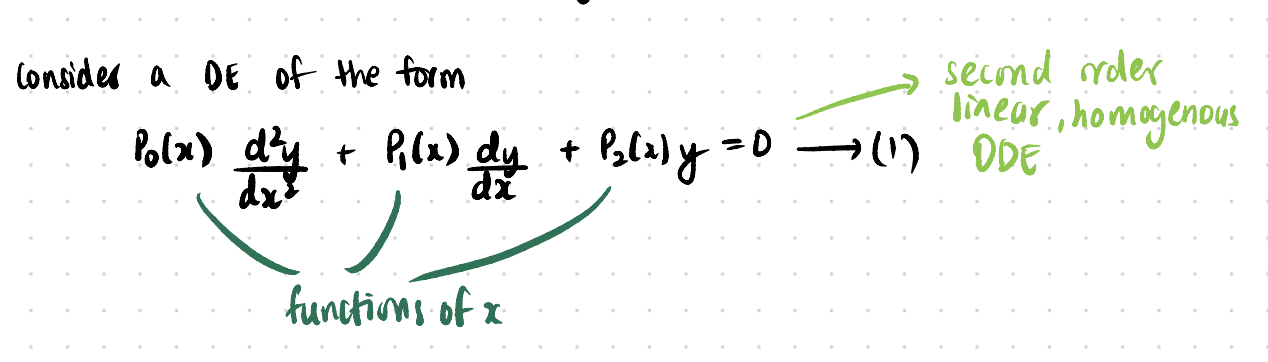 Consider a DE of the form
P₀(x) d²y/dx² + P₁(x) dy/dx + P₂(x) y = 0 ⟶ (1)
second order
linear, homogenous
ODE
functions of x